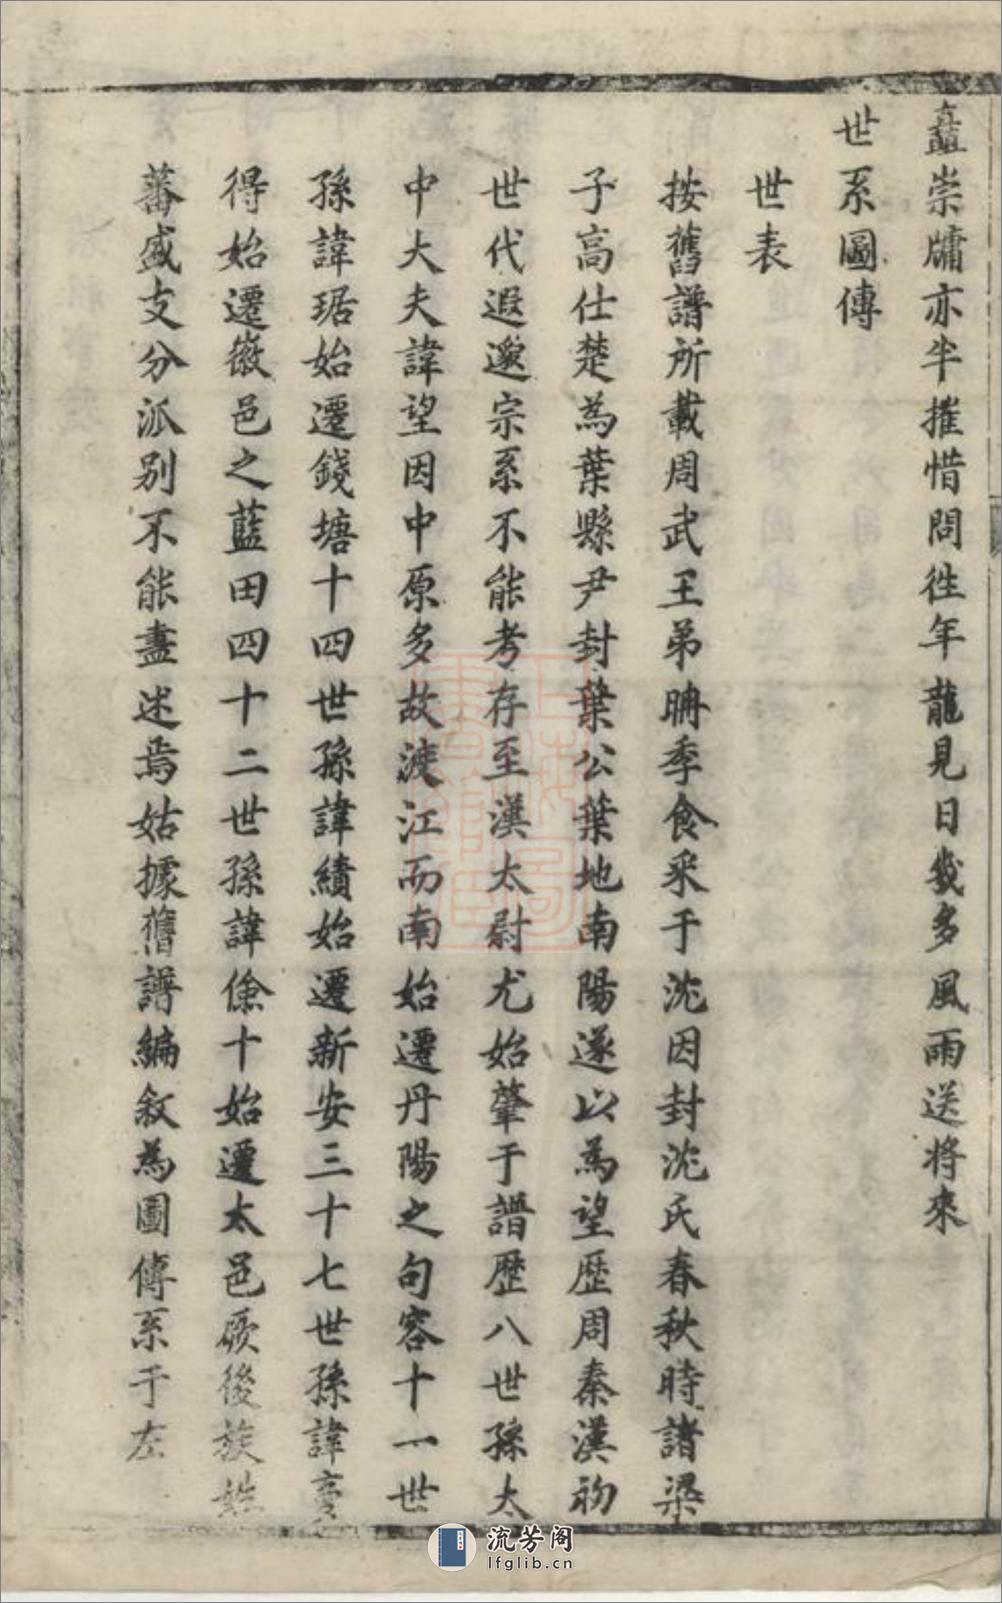 矗崇牗亦半摧惜問徃年龍見日幾多風雨送將來
世系圖傳
世表
按舊譜所載周武王弟冉季食采于沈因封沈氏春秋時諸梁
子高仕楚為葉縣尹封葉公葉地南陽遂以為望歷周秦漢初
世代遐邈宗系不能考存至漢太尉尤始肇于譜歷八世孫太
中大夫諱望因中原多故渡江而南始遷丹陽之句容十一世
孫諱琚始遷錢塘十四世孫諱績始遷新安三十七世孫諱
得始遷徽邑之藍田四十二世孫諱儉十始遷太邑厥後族姓
蕃盛支分派别不能盡述焉姑據舊譜編叙為圖傳系于左
流芳阁
lfglib.cn